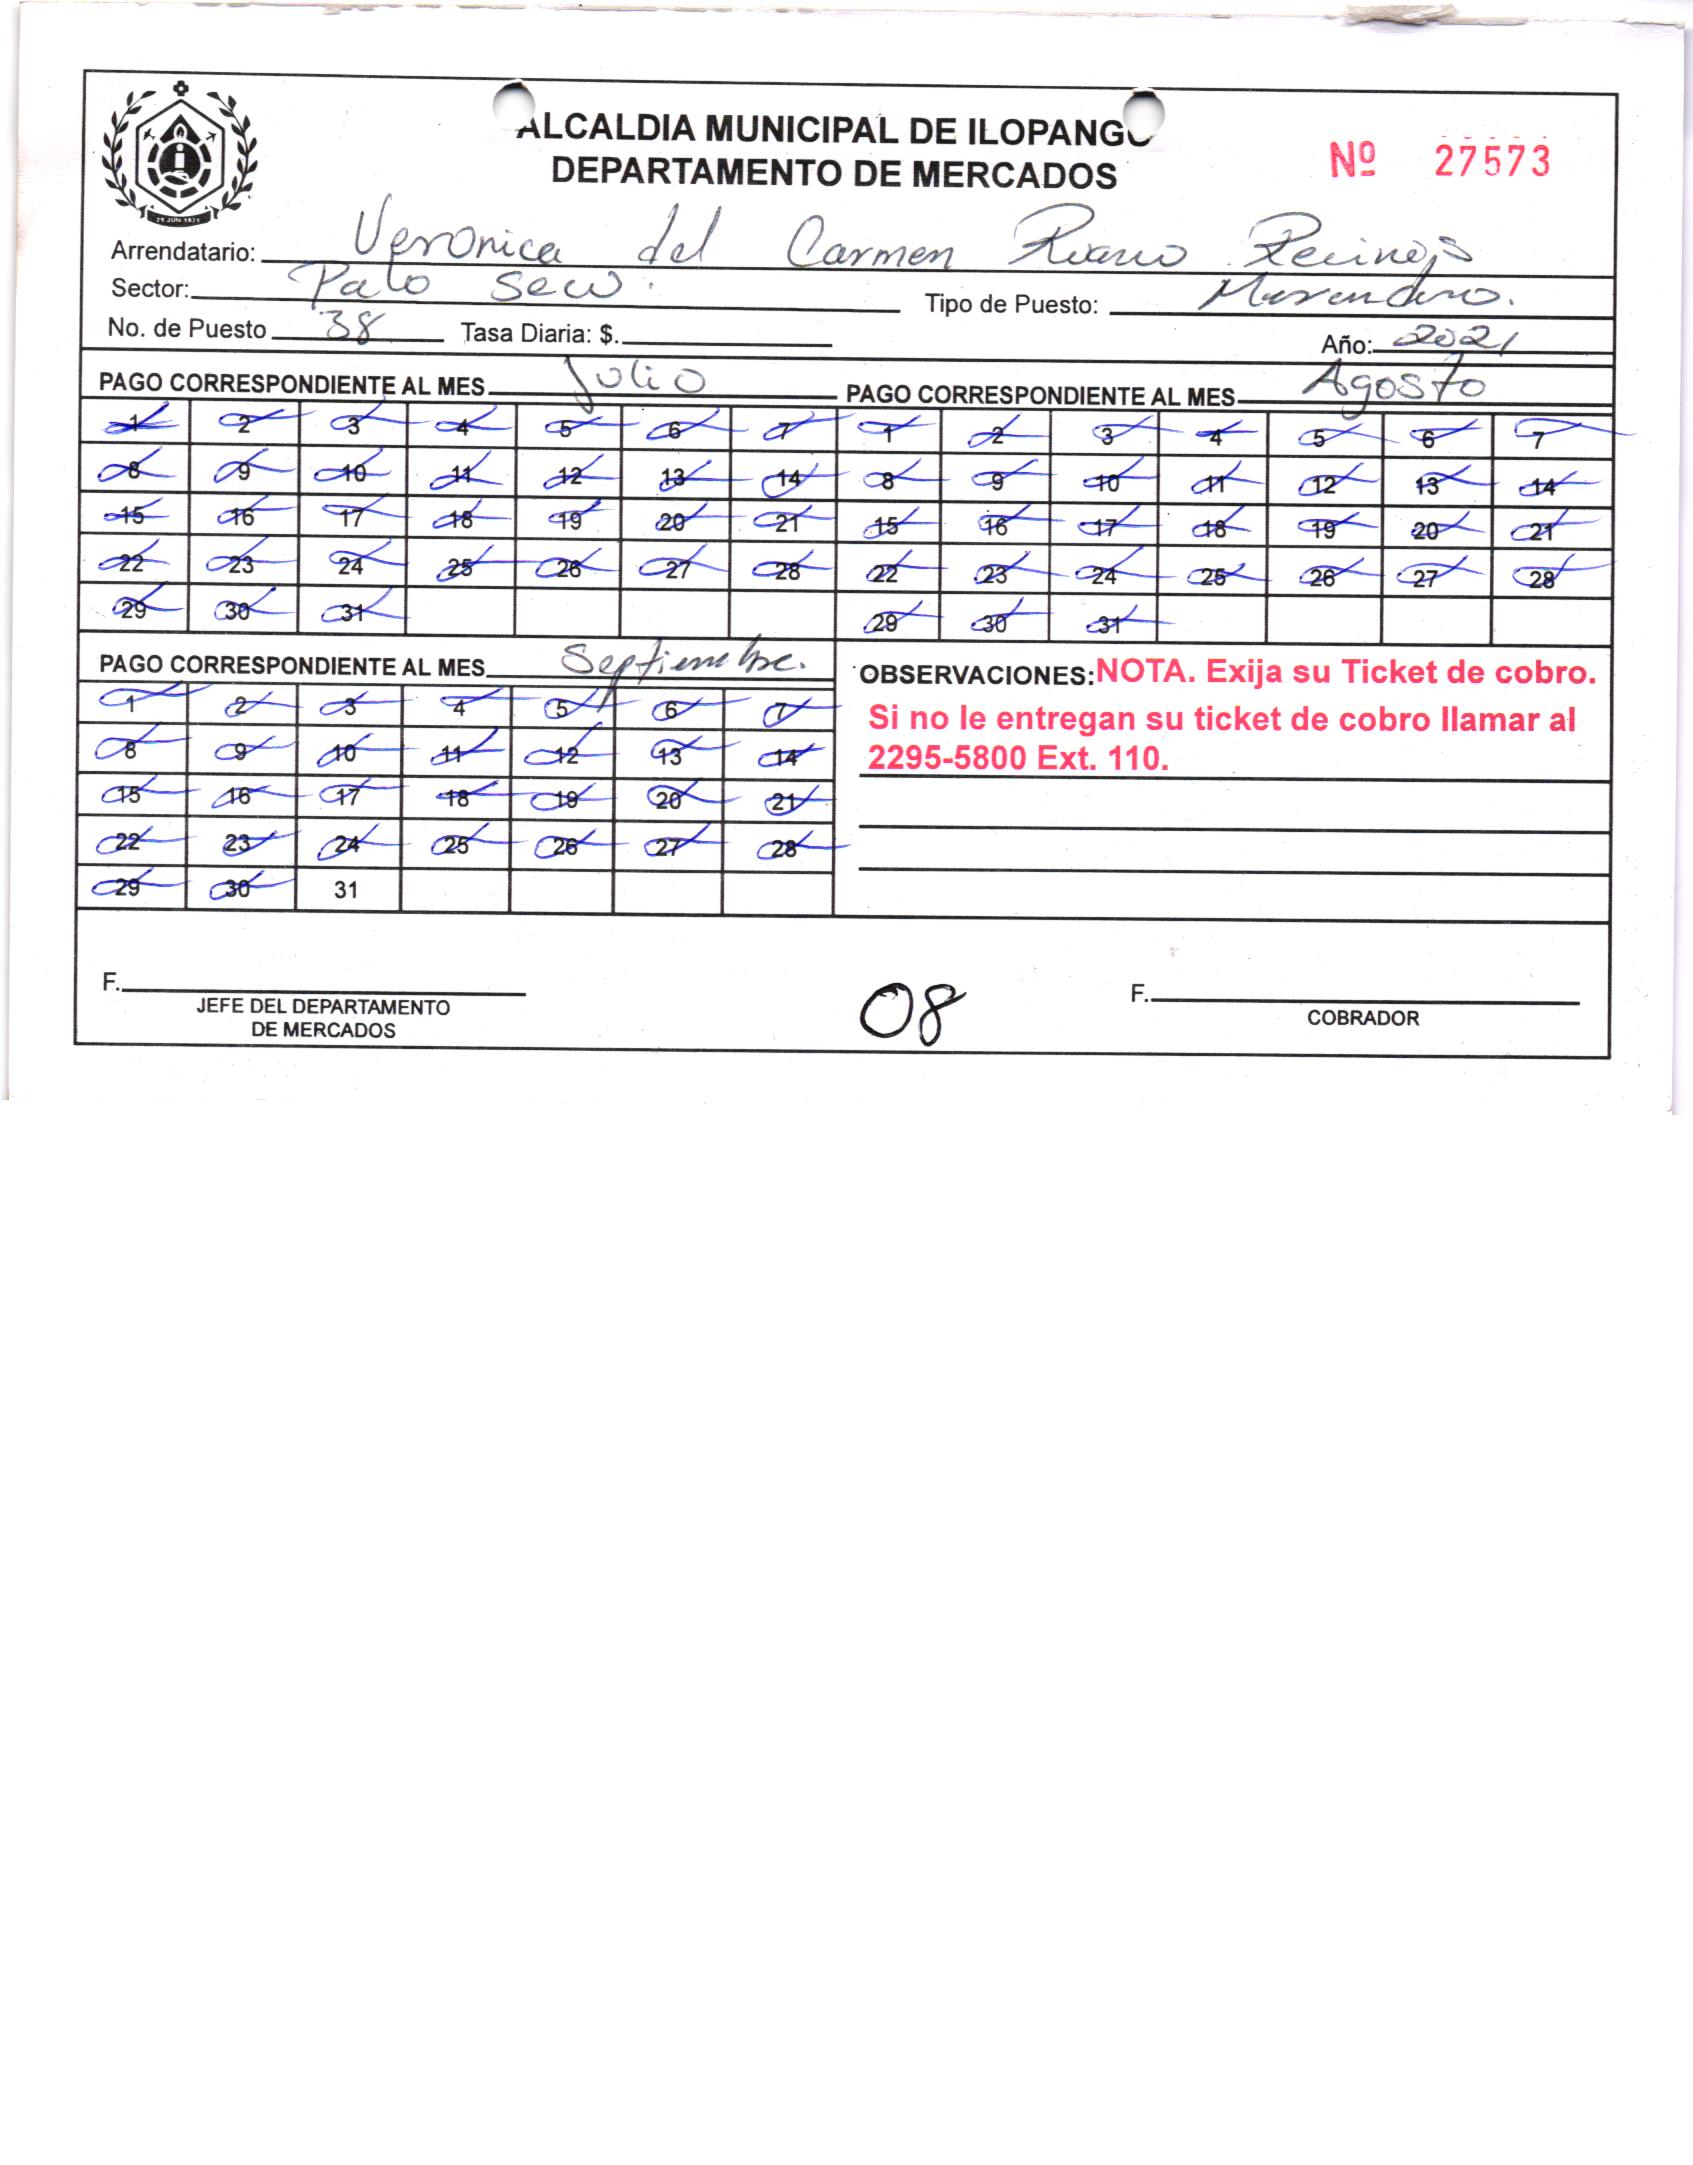 ALCALDIA MUNICIPAL DE ILOPANGO
DEPARTAMENTO DE MERCADOS
Nº 27573
29 JUN 1971
Arrendatario: Veronica del Carmen Ruano Recinos
Sector: Palo Seco.
Tipo de Puesto: Merendero.
No. de Puesto 38 Tasa Diaria: $.
Año: 2021
PAGO CORRESPONDIENTE AL MES Julio
1 2 3 4 5 6 7
8 9 10 11 12 13 14
15 16 17 18 19 20 21
22 23 24 25 26 27 28
29 30 31
PAGO CORRESPONDIENTE AL MES Agosto
1 2 3 4 5 6 7
8 9 10 11 12 13 14
15 16 17 18 19 20 21
22 23 24 25 26 27 28
29 30 31
PAGO CORRESPONDIENTE AL MES Septiembre.
1 2 3 4 5 6 7
8 9 10 11 12 13 14
15 16 17 18 19 20 21
22 23 24 25 26 27 28
29 30 31
OBSERVACIONES: NOTA. Exija su Ticket de cobro.
Si no le entregan su ticket de cobro llamar al
2295-5800 Ext. 110.
F.
JEFE DEL DEPARTAMENTO
DE MERCADOS
08
F.
COBRADOR